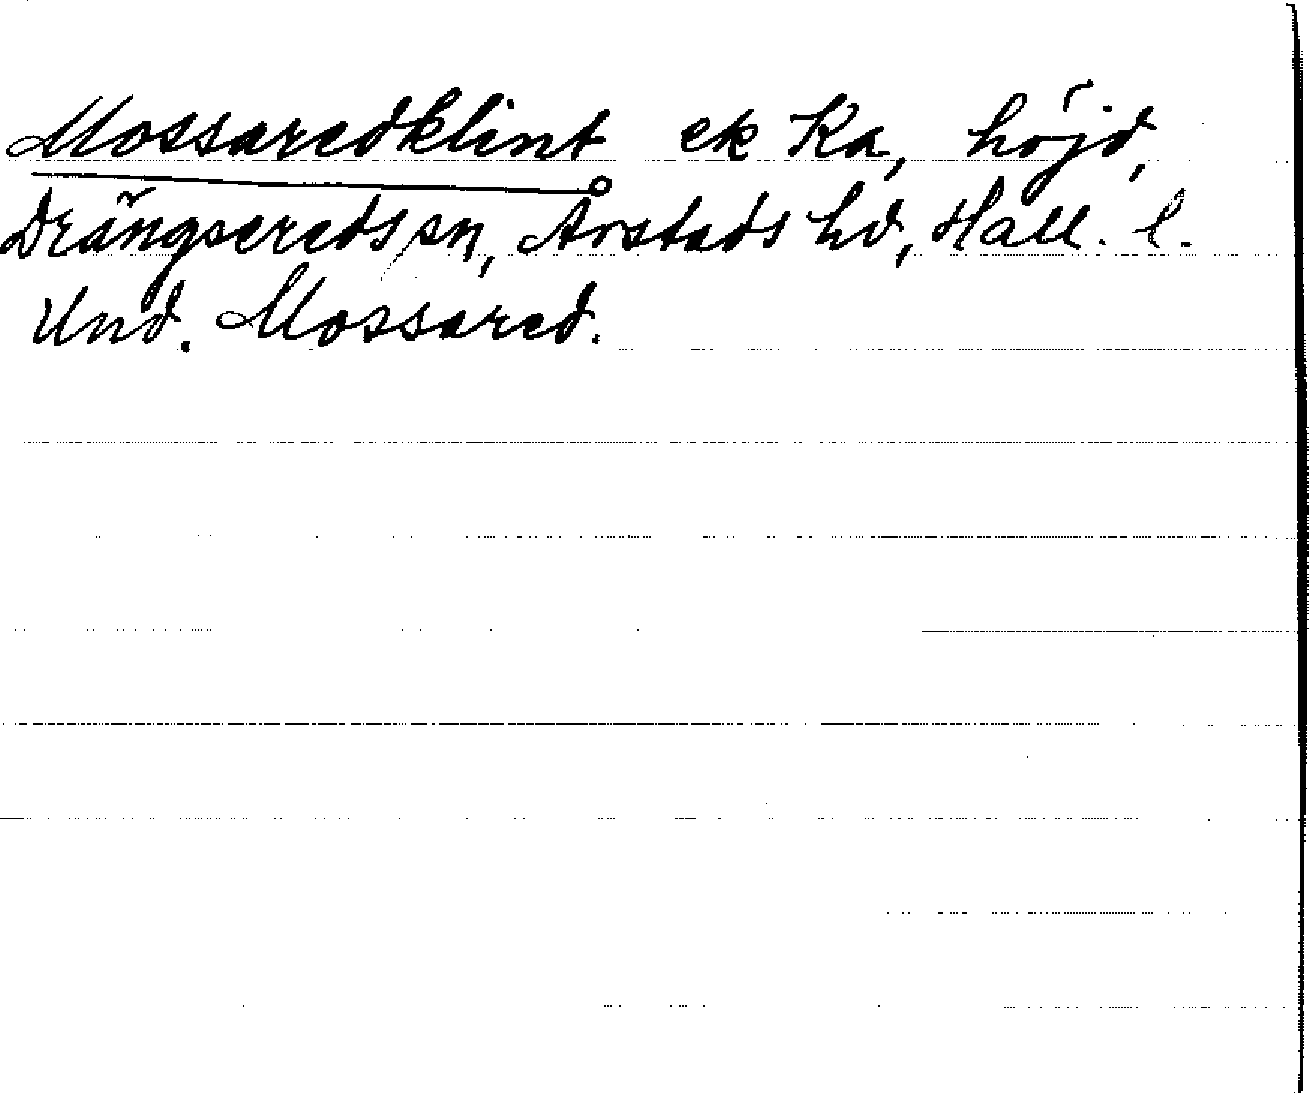 Mossaredklint ek Ka, höjd,
Drängsereds sn, Årstads hd, Hall. l.
Und. Mossared.